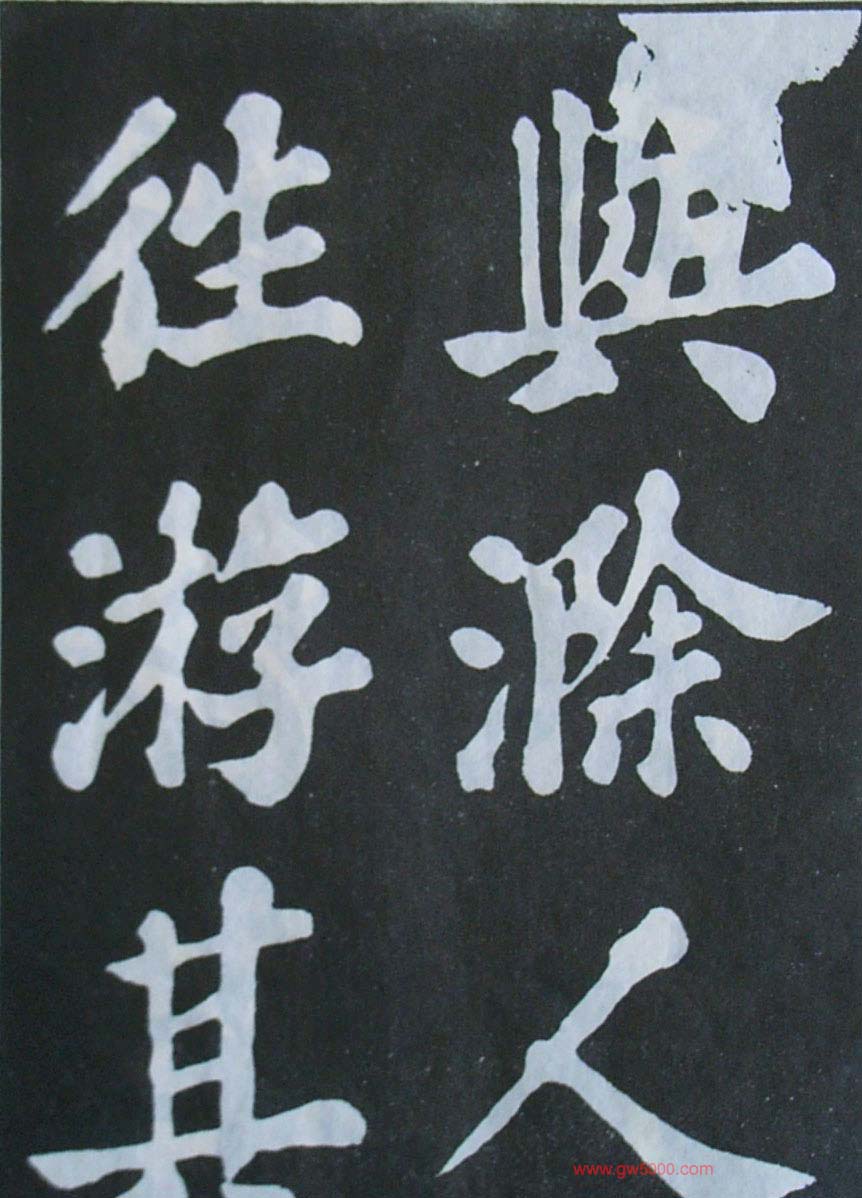 與滁人
往游其
www.gw5000.com